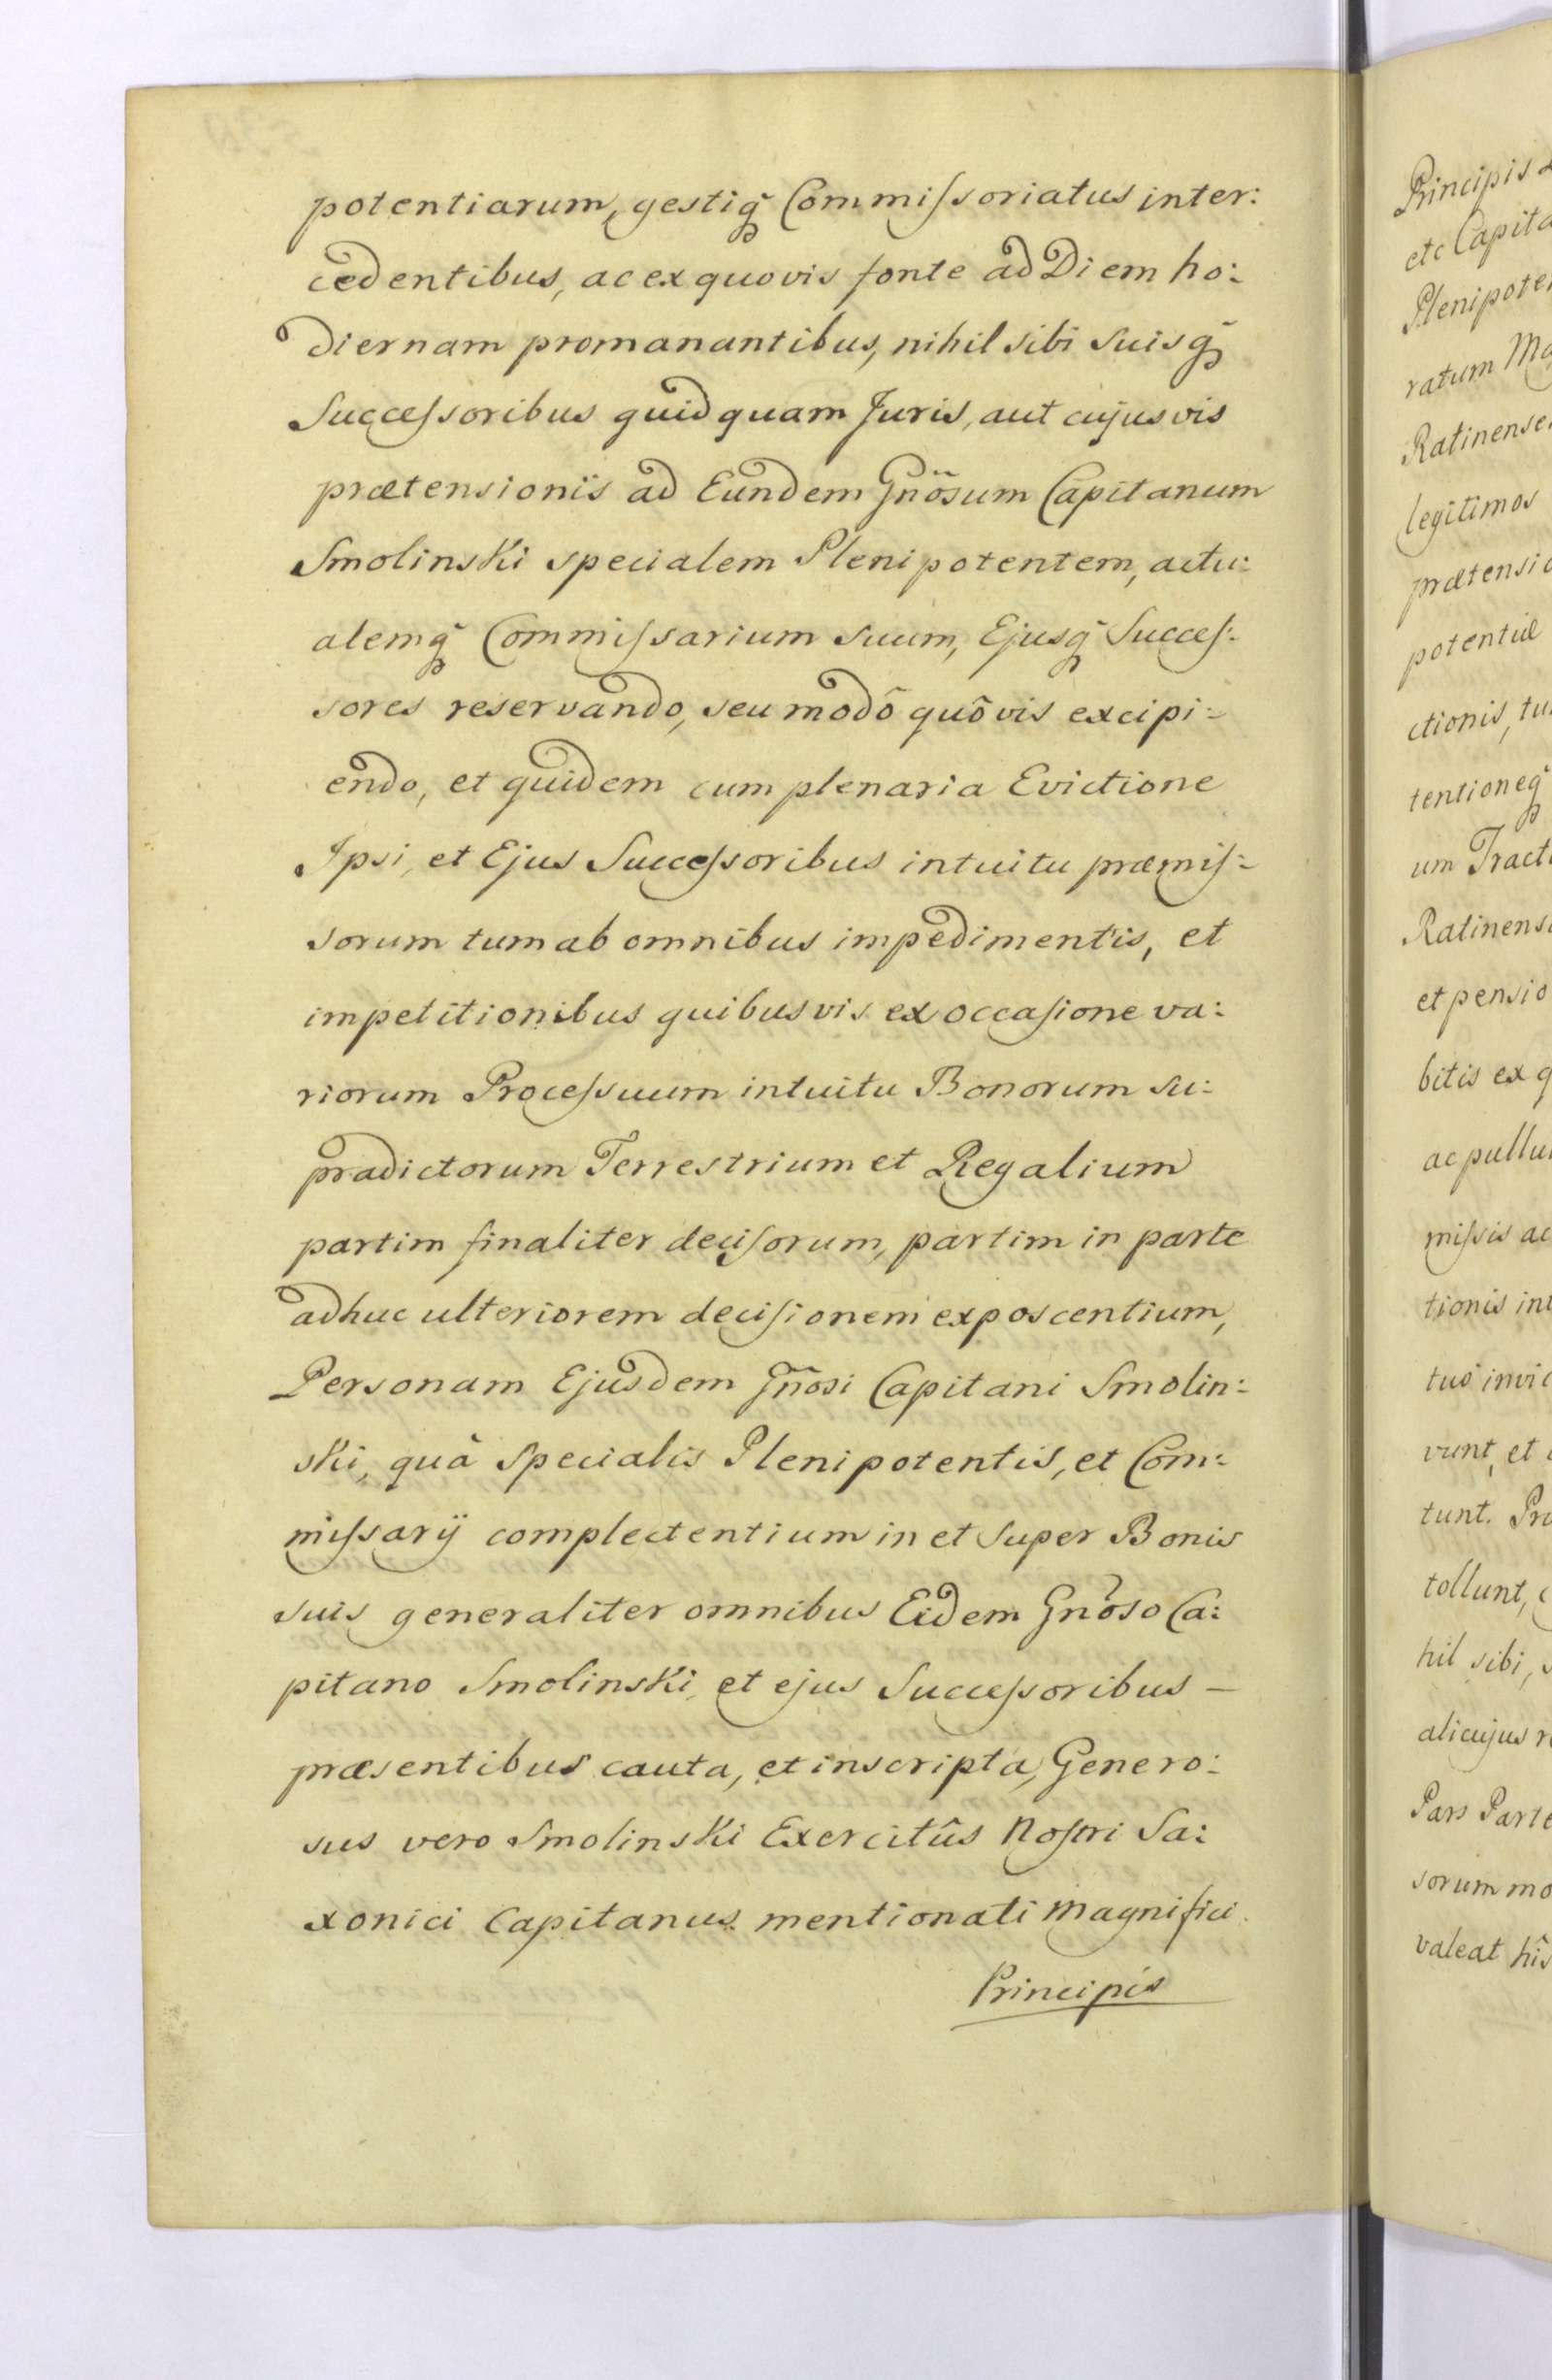 potentiarum, gestiq̃ Commiſsoriatus inter:
cedentibus, ac ex quovis fonte ad Diem ho:
diernam promanantibus, nihil sibi suisq̃
Succeſsoribus quidquam Juris, aut cujusvis
prætensionis ad Eundem Gnõsum Capitanum
Smolinski specialem Plenipotentem, actu:
alemq̃ Commiſsarium suum, Ejusq̃ Succeſ:
sores reservando, seu modô quôvis excipi:
endo, et quidem cum plenaria Evictione
Ipsi, et Ejus Succeſsoribus intuitu præmiſ:
sorum tum ab omnibus impedimentis, et
impetitionibus quibusvis ex occaſione va:
riorum Proceſsuum intuitu Bonorum su:
pradictorum Terrestrium et Regalium
partim finaliter deciſorum, partim in parte
adhuc ulteriorem deciſionem exposcentium,
Personam Ejusdem Gñosi Capitani Smolin:
ski, quà Specialis Plenipotentis, et Com:
miſsarij complectentium in et super Bonis
suis generaliter omnibus Eidem Gnõso Ca:
pitano Smolinski, et ejus Succeſsoribus –
præsentibus cauta, et inscripta, Genero:
sus vero Smolinski Exercitûs Noſtri Sa:
xonici Capitanus mentionati Magnifici
Principis
Principis
etc Capita
Plenipoten
ratum Ma
Ratinense
legitimos
prætensio
potentiæ
ctionis, tu
tentioneq̃
um Tract
Ratinens
et pensio
bitis ex q
ac pullu
miſsis ac
tionis int
tuò invic
vunt, et
tunt. Pro
tollunt,
hil sibi, s
alicujus r
Pars Parte
sorum mo
valeat his